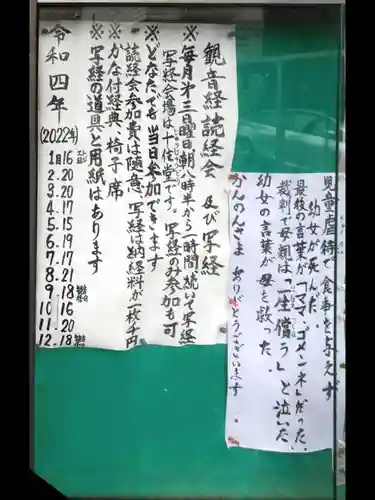 児童虐待で食事を与えず
幼女が死んだ。
最後の言葉が「ママ、ゴメンネ」だった。
裁判で母親は「一生償う」と泣いた
幼女の言葉が母を救った。
かんのんさま ありがとうございます。
観音経読経会 及び写経
※毎月第三日曜日朝八時半から一時間続いて写経
写経会場は十住堂です。写経のみ参加も可
※どなたでも当日参加できます
読経会参加費は随意、写経は納経料が一枚千円
※かな付経典、椅子席
※写経の道具と用紙はあります
令和四年
(2022年)
1月16
2.20
3.20
4.17
5.15
6.19
7.17
8.21
9.18
10.16
11.20
12.18